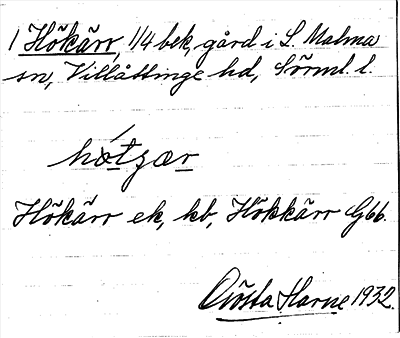 1 Hökärr, 1/4 bek, gård i L. Malma
sn, Villåttinge hd, Sörml. l.
hötzær
Hökärr ek, kb, Hökkärr Gbb.
Gösta Harne 1932.